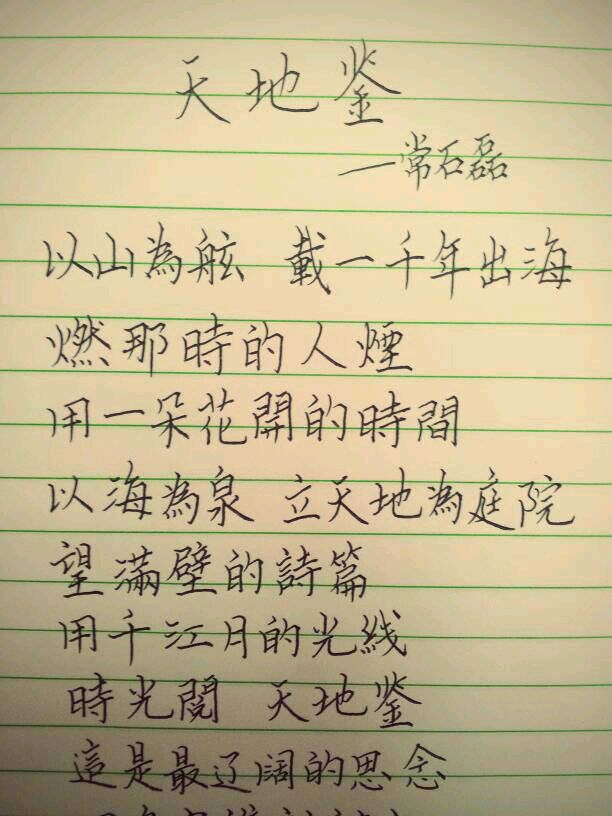 天地鉴
—常石磊
以山為舷 載一千年出海
燃那時的人煙
用一朵花開的時間
以海為泉 立天地為庭院
望滿壁的詩篇
用千江月的光线
時光閱 天地鉴
這是最辽闊的思念